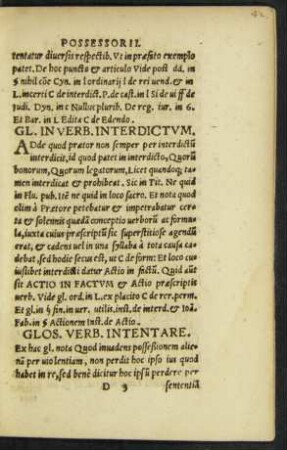 POSSESSORII.
tentatur diuersis respectib. Vt in præsito exemplo
patet. De hoc puncto & articulo Vide post dd. in
§ nihil cõe Cyn. in l ordinarij l de rei uend. & in
L. incerti C de interdict. P. de cast. in l Si de ui ff de
iudi. Dyn. in c Nullus plurib. De reg. iur. in 6.
Et Bar. in l. Edita C de Edendo.
GL. IN VERB. INTERDICTVM.
ADde quod prætor non semper per interdictũ
interdicit, id quod patet in interdicto, Quorũ
bonorum, Quorum legatorum, Licet quandoq; ta-
men interdicat & prohibeat. Sic in Tit. Ne quid
in Flu. pub. Itẽ ne quid in loco sacro. Et nota quod
olim à Prætore petebatur & impetrabatur certa
& solennis quædã conceptio uerborũ ac formu-
la, iuxta cuius præscriptũ sic superstitiose agendũ
erat, & cadens uel in una syllaba à tota causa ca-
debat, sed hodie secus est, ut C de form: Et loco cu-
iuslibet interdicti datur Actio in factũ. Quid aũt
sit ACTIO IN FACTVM & Actio præscriptis
uerb. Vide gl. ord. in L. ex placito C de rer. perm.
Et gl. in § fin. in uer. utilis, inst. de interd. & Ioã.
Fab. in § Actionem Inst. de Actio.
GLOS. VERB. INTENTARE.
Ex hac gl. nota Quod inuadens possessionem alie-
nã per uiolentiam, non perdit hoc ipso ius quod
habet in re, sed benè dicitur hoc ipsũ perdere per
D 3 sententiã